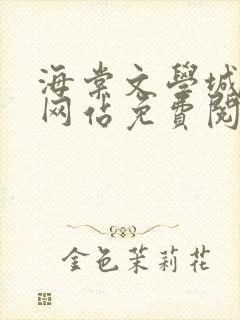 海棠文學城
网站免費閱
金色茉莉花